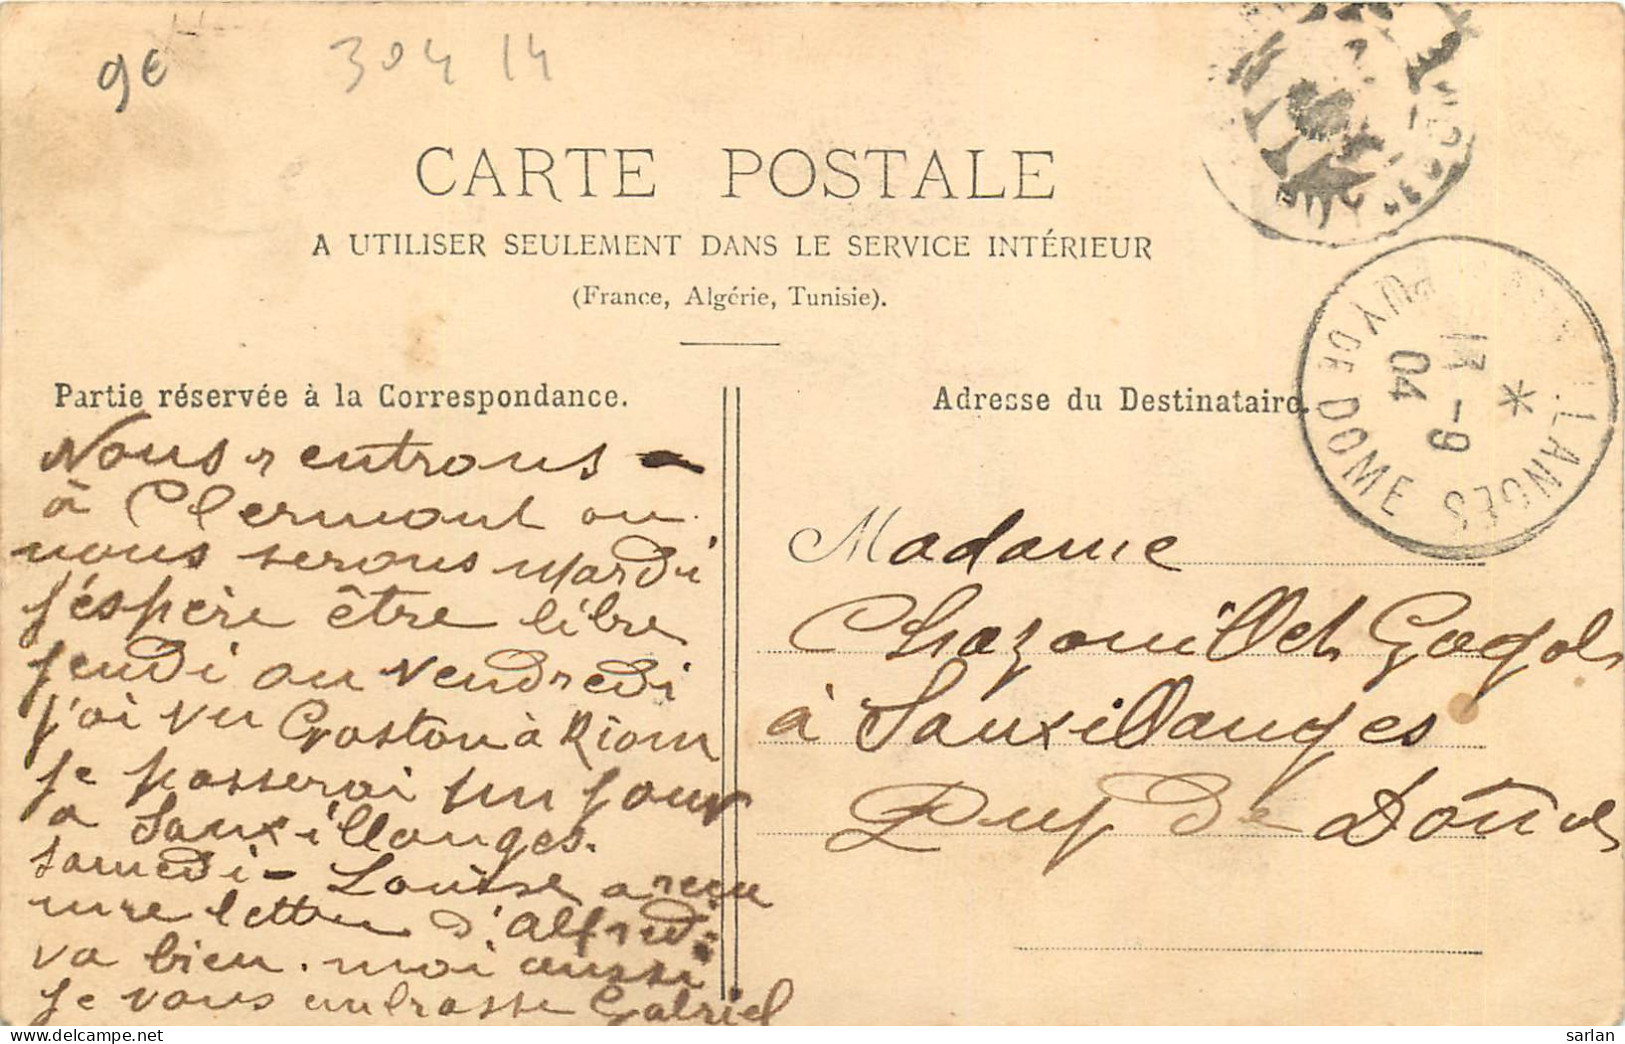 9€
304 14
CARTE POSTALE
A UTILISER SEULEMENT DANS LE SERVICE INTÉRIEUR
(France, Algérie, Tunisie).
Partie réservée à la Correspondance.
Nous rentrons -
à Clermont ou
nous serons Mardi
j'éspère être libre
jeudi ou Vendredi
j'ai vu Gaston à Riom
je passerai un jour
a Sauxillanges.
samedi - Louise a reçu
une lettre d'Alfred
va bien. moi aussi
je vous embrasse Gabriel
Adresse du Destinataire.
Madame
Chazouillet
à Sauxillanges
Puy de Dôme
LANGES
PUY DE DOME
13 -9
04
sarlan